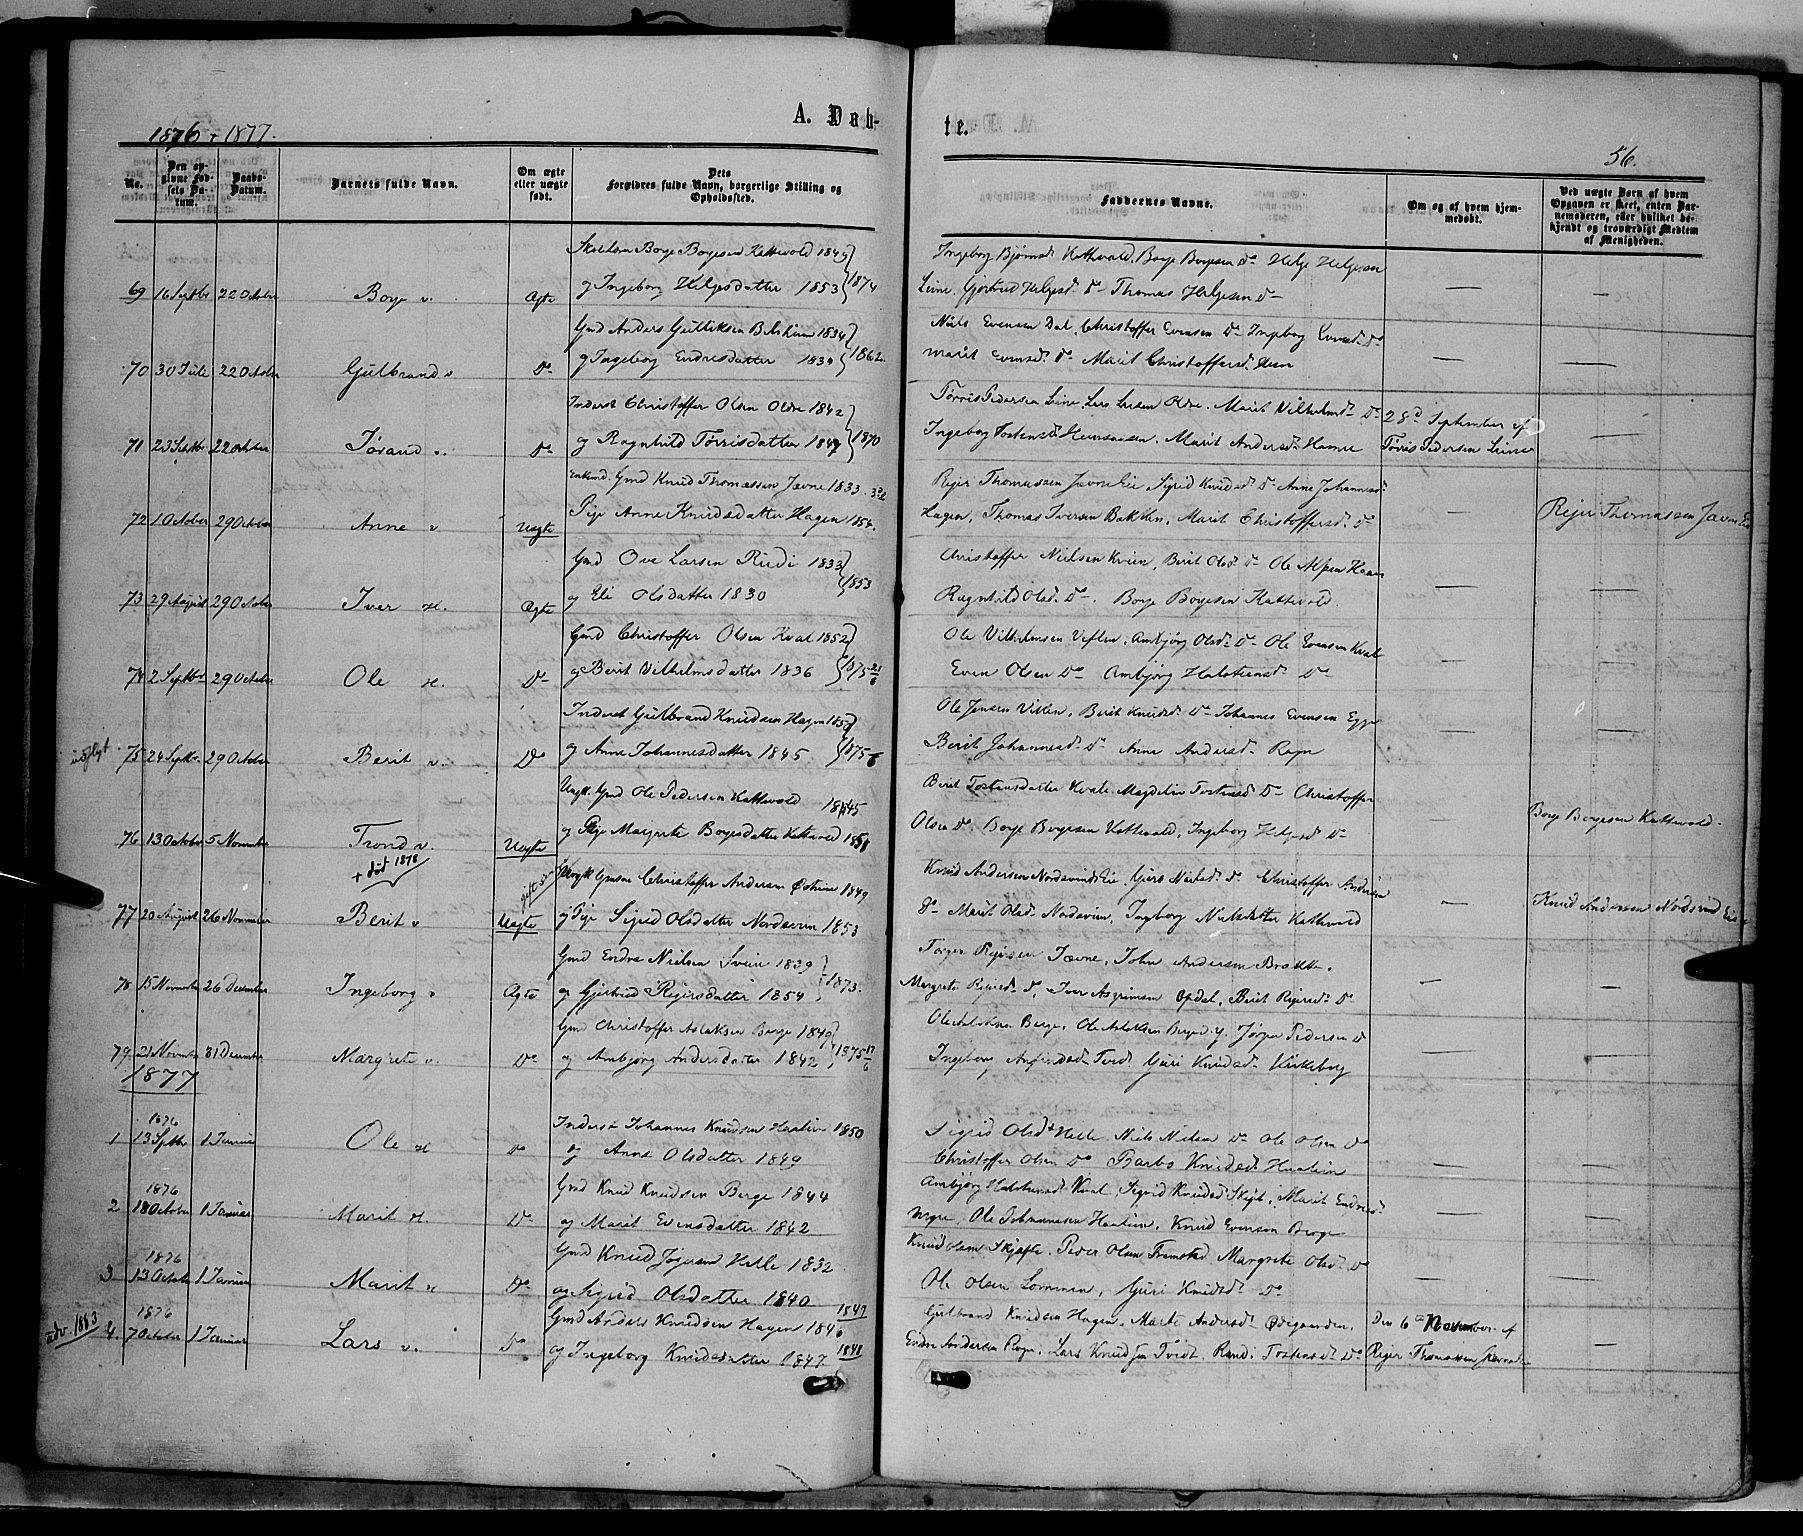 1876 + 1877.
A. Døb-
te.
56.
No.
Den opgivne Fødsels Datum.
Daabs-Datum.
Barnets fulde Navn.
Om ægte eller uægte født.
Dets Forældres fulde Navn, borgerlige Stilling og Opholdssted.
Faddernes Navne.
Om og af hvem hjemmedøbt.
Ved uægte Børn af hvem Opgaven er skeet, enten Barnemoderen, eller hvilket bekjendt og troværdigt Medlem af Menigheden.
Borge Borgesen Kattevold 1849
69 16 Septbr 22 October Borge v. Ægte og Ingeborg Helgesdatter 1853 1874
Ingeborg Bjørnsd Kattevold, Borge Borgesen Do Helge Helgesen
Leine, Gjertrud Helgesd. Do Thomas Helgesen Do —
Gmd Anders Gulliksen 1834
70 30 Juli 22 October Gulbrand v Do og Ingeborg Endresdatter 1834 1862
Niels Evensen Dal, Christoffer Evensen Do Ingeborg Evensd. Do
Marit Evensd. Do Marit Christoffersd. — —
Inderst Christoffer Olsen Olde 1842
71 23 Septbr 22 October Jørand v. Do og Ragnhild Tørrisdatter 1847 1870
Tørris Pedersen Leine, Lars Larsen Olde, Marit Vilhelmsd. Do 28d September af
Ingeborg Tostensd. Marit Andersd. Hamre Tørris Pedersen Leine —
Enkemd. Gmd Knud Thomassen Jævne 1833
72 1 October 29 October Anne v Uægte Pige Anne Knudsdatter Hagen 1854.
Rejer Thomassen Jævne Eie, Sigrid Knudsd. Do Anne Johannesd.
Hagen, Thomas Iversen Bakken, Marit Christoffersd. Do — Rejer Thomassen Jævne Eie
Gmd Ove Larsen Rudi 1833
73 29 August 29 October Iver H. Ægte og Eli Olsdatter 1830 1853
Christoffer Nielsen Kvien, Berit Olsd. Do Ole
Ragnhild Olsd. Do. Borge Borgesen Kattevold. — —
Gmd Christoffer Olsen Kval 1852
74 2 Septbr 29 October Ole H. Do og Berit Vilhelmsdatter 1836 1875 21/6
Ole Vilhelmsen, Ambjørg Olsd. Do Ole Evensen Kval
Even Olsen Do Ambjørg Halstensd. Do — —
Inderst Gulbrand Knudsen Hagen
75 24 Septbr. 29 October Berit v. Do og Anne Johannesdatter 1845 1875
Ole Jensen Viken, Berit Knudsd. Do Johannes Evensen Egge
Berit Johannesd. Do Anne Andersd. Rogn — —
Ungk. Gmd Ole Pedersen Kattevold 1845
76 13 October 5 November Trond v. Uægte og Pige Margrete Borgesdatter Kattevold
+ død 1878
Berit Tostensdatter Kvale, Magdeline Tostensd. Do Christoffer
Olsen Do, Borge Borgesen Kattevold, Ingeborg Helgesd. Do Borge Borgesen Kattevold.
Ungk Gmsøn Christoffer Andersen 1849
77 20 August 26 November Berit v Uægte og Pige Sigrid Olsdatter Nordsvien 1853
Knud Andersen Nordsvind Eie, Do Christoffer Andersen
Do Marit Olsd. Nordsvien, Ingeborg Nielsdatter Kattevold — Knud Andersen Nordsvind Eie
Gmd Endre Nielsen Svein 1839
78 15 November 26 December Ingeborg v Ægte og Gjertrud Rejersdatter 1854 1873.
Torger Rejersen Jævne, John Andersen
Margrete Rejersd. Do, Iver Asgrimsen Opdal, Berit Rejersd. Do — —
Gmd Christoffer Aslaksen Berge 1849
79 21 November 31 December Margrete v. Do og Ambjørg Andersdatter 1842 1875 17/6
Ole Aslaksen Berge, Ole Aslaksen Berge y, Jørgen Pedersen Do
Ingeborg Guri Knudsd. Kirkeborg — —
1877
1876
1 13 Septbr 1 Januar Ole H Do
Inderst Johannes Knudsen Haalien 1850
og Anne Olsdatter 1849
Sigrid Olsd. Helle, Niels Nielsen Do Ole Olsen Do
Christoffer Olsen Do Barbo Knudsd. Haalien — —
1876
2 18 October 1 Januar Marit H. Do
Gmd Knud Knudsen Berge 1844
og Marit Evensdatter 1842
Ambjørg Halstensd. Kval, Sigrid Knudsd. Marit Endresd.
Ole Johannesen Haalien, Knud Evensen Berge — —
1876
3 13 October 1 Januar Marit v Do
Gmd Knud Helle 1832
og Sigrid Olsdatter 1840
Knud Olsen Skjefte, Peder Olsen Margrete Olsd. Do
Ole Olsen Lommen, Guri Knudsd. Do — —
1876
4. 7 October 1 Januar Lars v. Do
Gmd Anders Knudsen Hagen 1847
og Ingeborg Knudsdatter 1847 1848
Gulbrand Knudsen Hagen, Marte Andersd. Ødegaarden, Den 6te November af
Endre Andersen Rogn, Lars Knudsen Tvedt, Randi Tostensd. Do Rejer Thomassen
udv. 1883